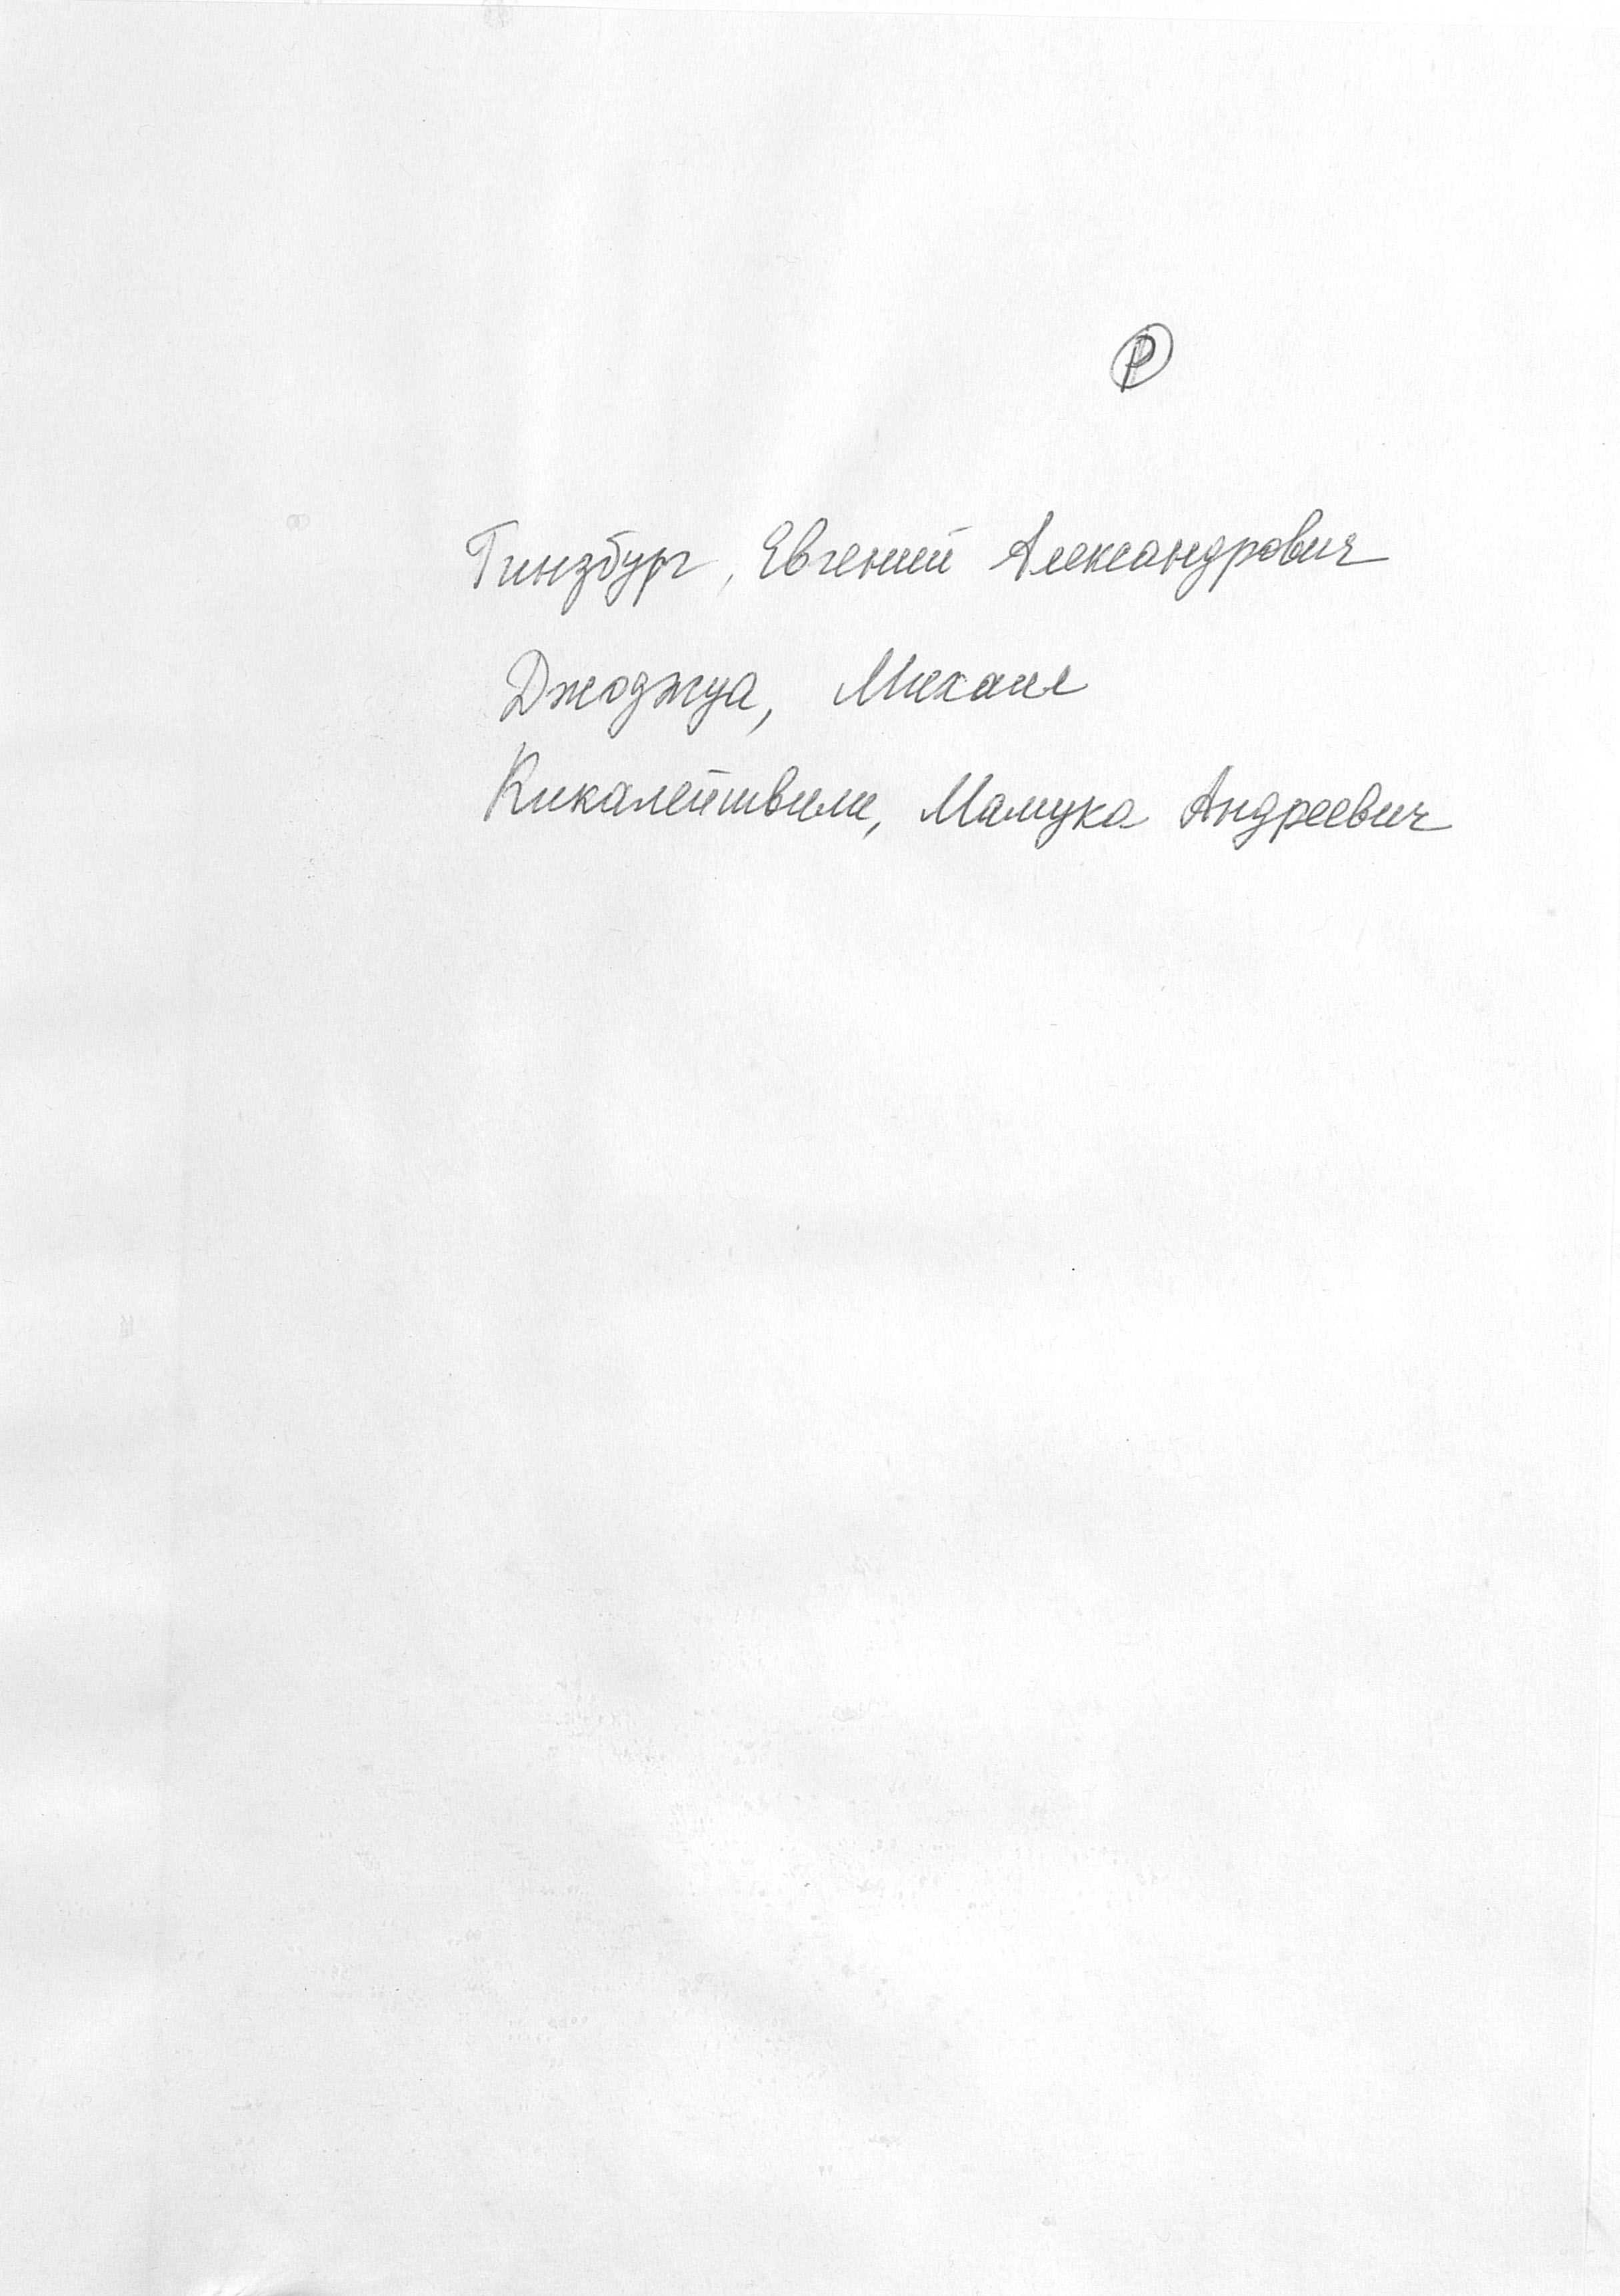 Р
Гинзбург, Евгений Александрович
Джоджуа, Михаил
Кикалейшвили, Мамука Андреевич